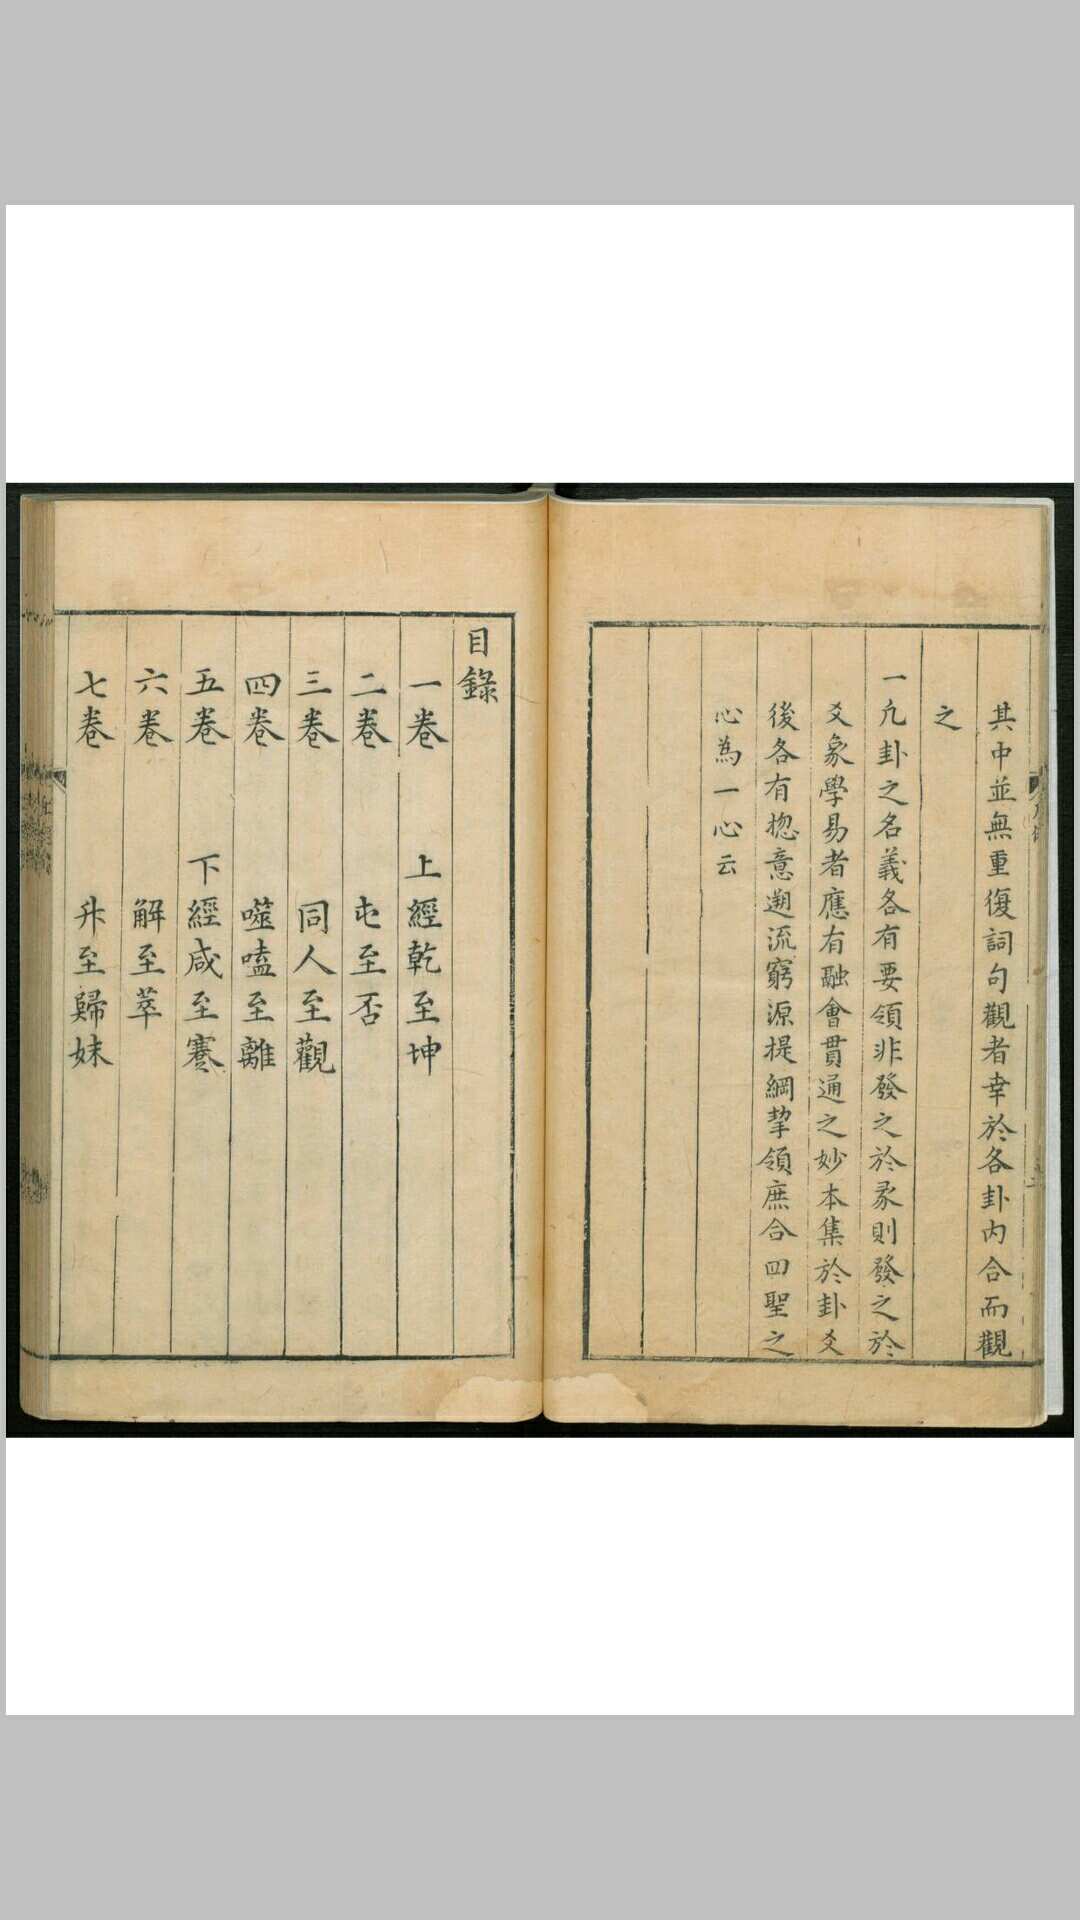 其中並無重復詞句觀者幸於各卦内合而觀
之
一凢卦之名義各有要領非發之於彖則發之於
爻象學易者應有融會貫通之妙本集於卦爻
後各有揔意遡流窮源提綱挈領庶合四聖之
心為一心云
目錄
一卷 上經乾至坤
二卷 屯至否
三卷 同人至觀
四卷 噬嗑至離
五卷 下經咸至蹇
六卷 解至萃
七卷 升至歸妹